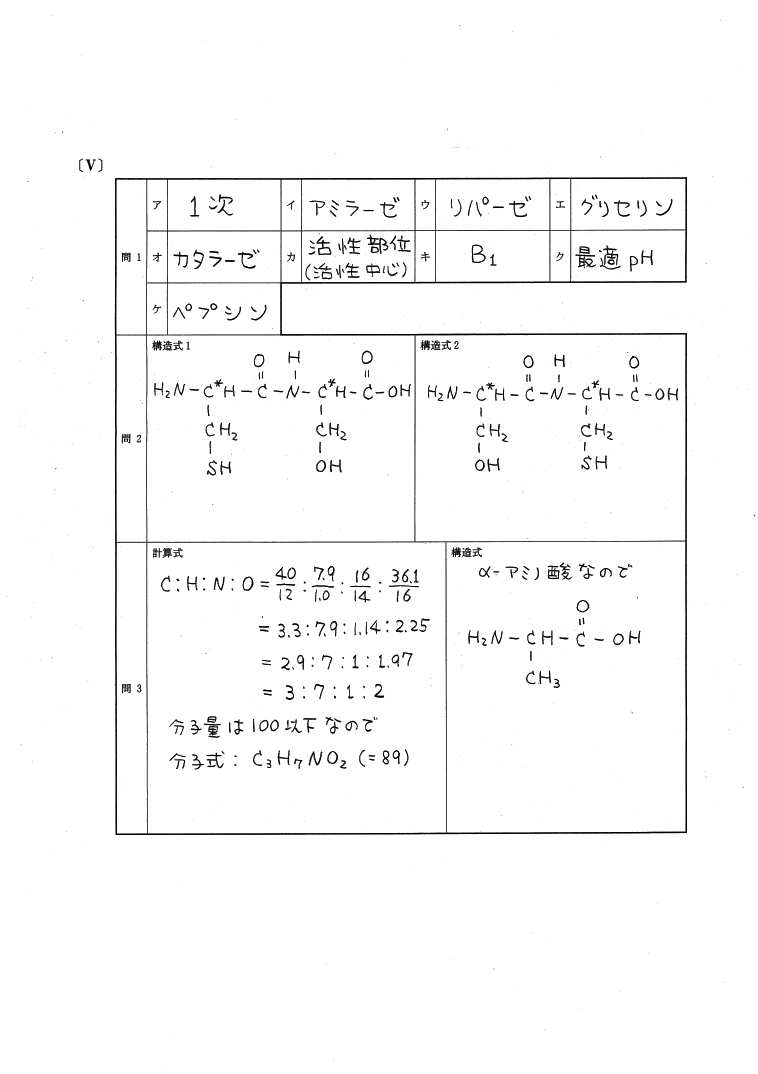 〔V〕
問1
ア 1次 イ アミラーゼ ウ リパーゼ エ グリセリン
オ カタラーゼ カ 活性部位(活性中心) キ B₁ ク 最適pH
ケ ペプシン
問2
構造式1
O H O
|| | ||
H₂N-C*H-C-N-C*H-C-OH
| |
CH₂ CH₂
| |
SH OH
構造式2
O H O
|| | ||
H₂N-C*H-C-N-C*H-C-OH
| |
CH₂ CH₂
| |
OH SH
問3
計算式
C:H:N:O=40/12:7.9/1.0:16/14:36.1/16
=3.3:7.9:1.14:2.25
=2.9:7:1:1.97
=3:7:1:2
分子量は100以下なので
分子式:C₃H₇NO₂(=89)
構造式
α-アミノ酸なので
O
||
H₂N-CH-C-OH
|
CH₃